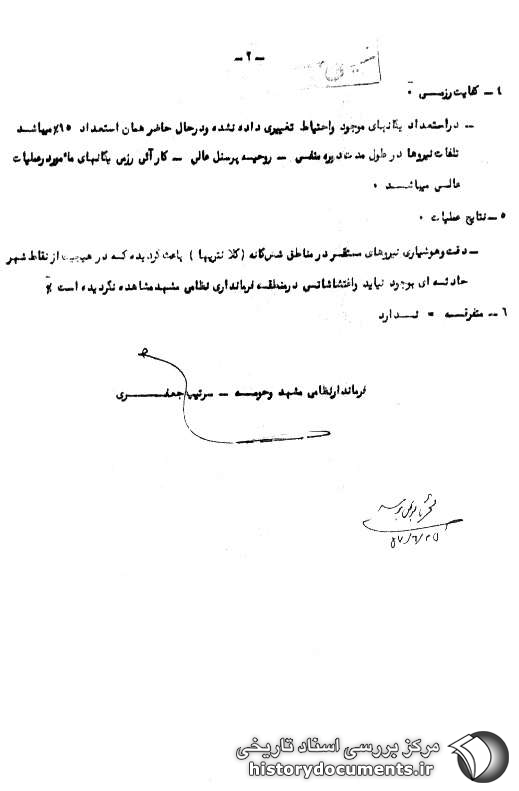 - ۲ -
٤ - کفایت رزمی ۰
- در استعداد یگانهای موجود واحتیاط تغییری داده نشده ودرحال حاضر همان استعداد ۹۵٪ میباشد
تلفات نیروها در طول مدت دوره منفی - روحیه پرسنل عالی - کار آئی رزمی یگانهای مأمور درعملیات
عالی میباشد ۰
۵ - نتایج عملیات ۰
- دقت وهوشیاری نیروهای مستقر در مناطق شش گانه ( کلانتریها ) باعث گردیده که در هیچیک از نقاط شهر
حادثه ای بوجود نیاید واغتشاشاتی در منطقه فرمانداری نظامی مشهد مشاهده نگردیده است ٪
٦ - متفرقه = ندارد
فرماندار نظامی مشهد وحومه - سرتیپ جعفری
مرکز بررسی اسناد تاریخی
historydocuments.ir